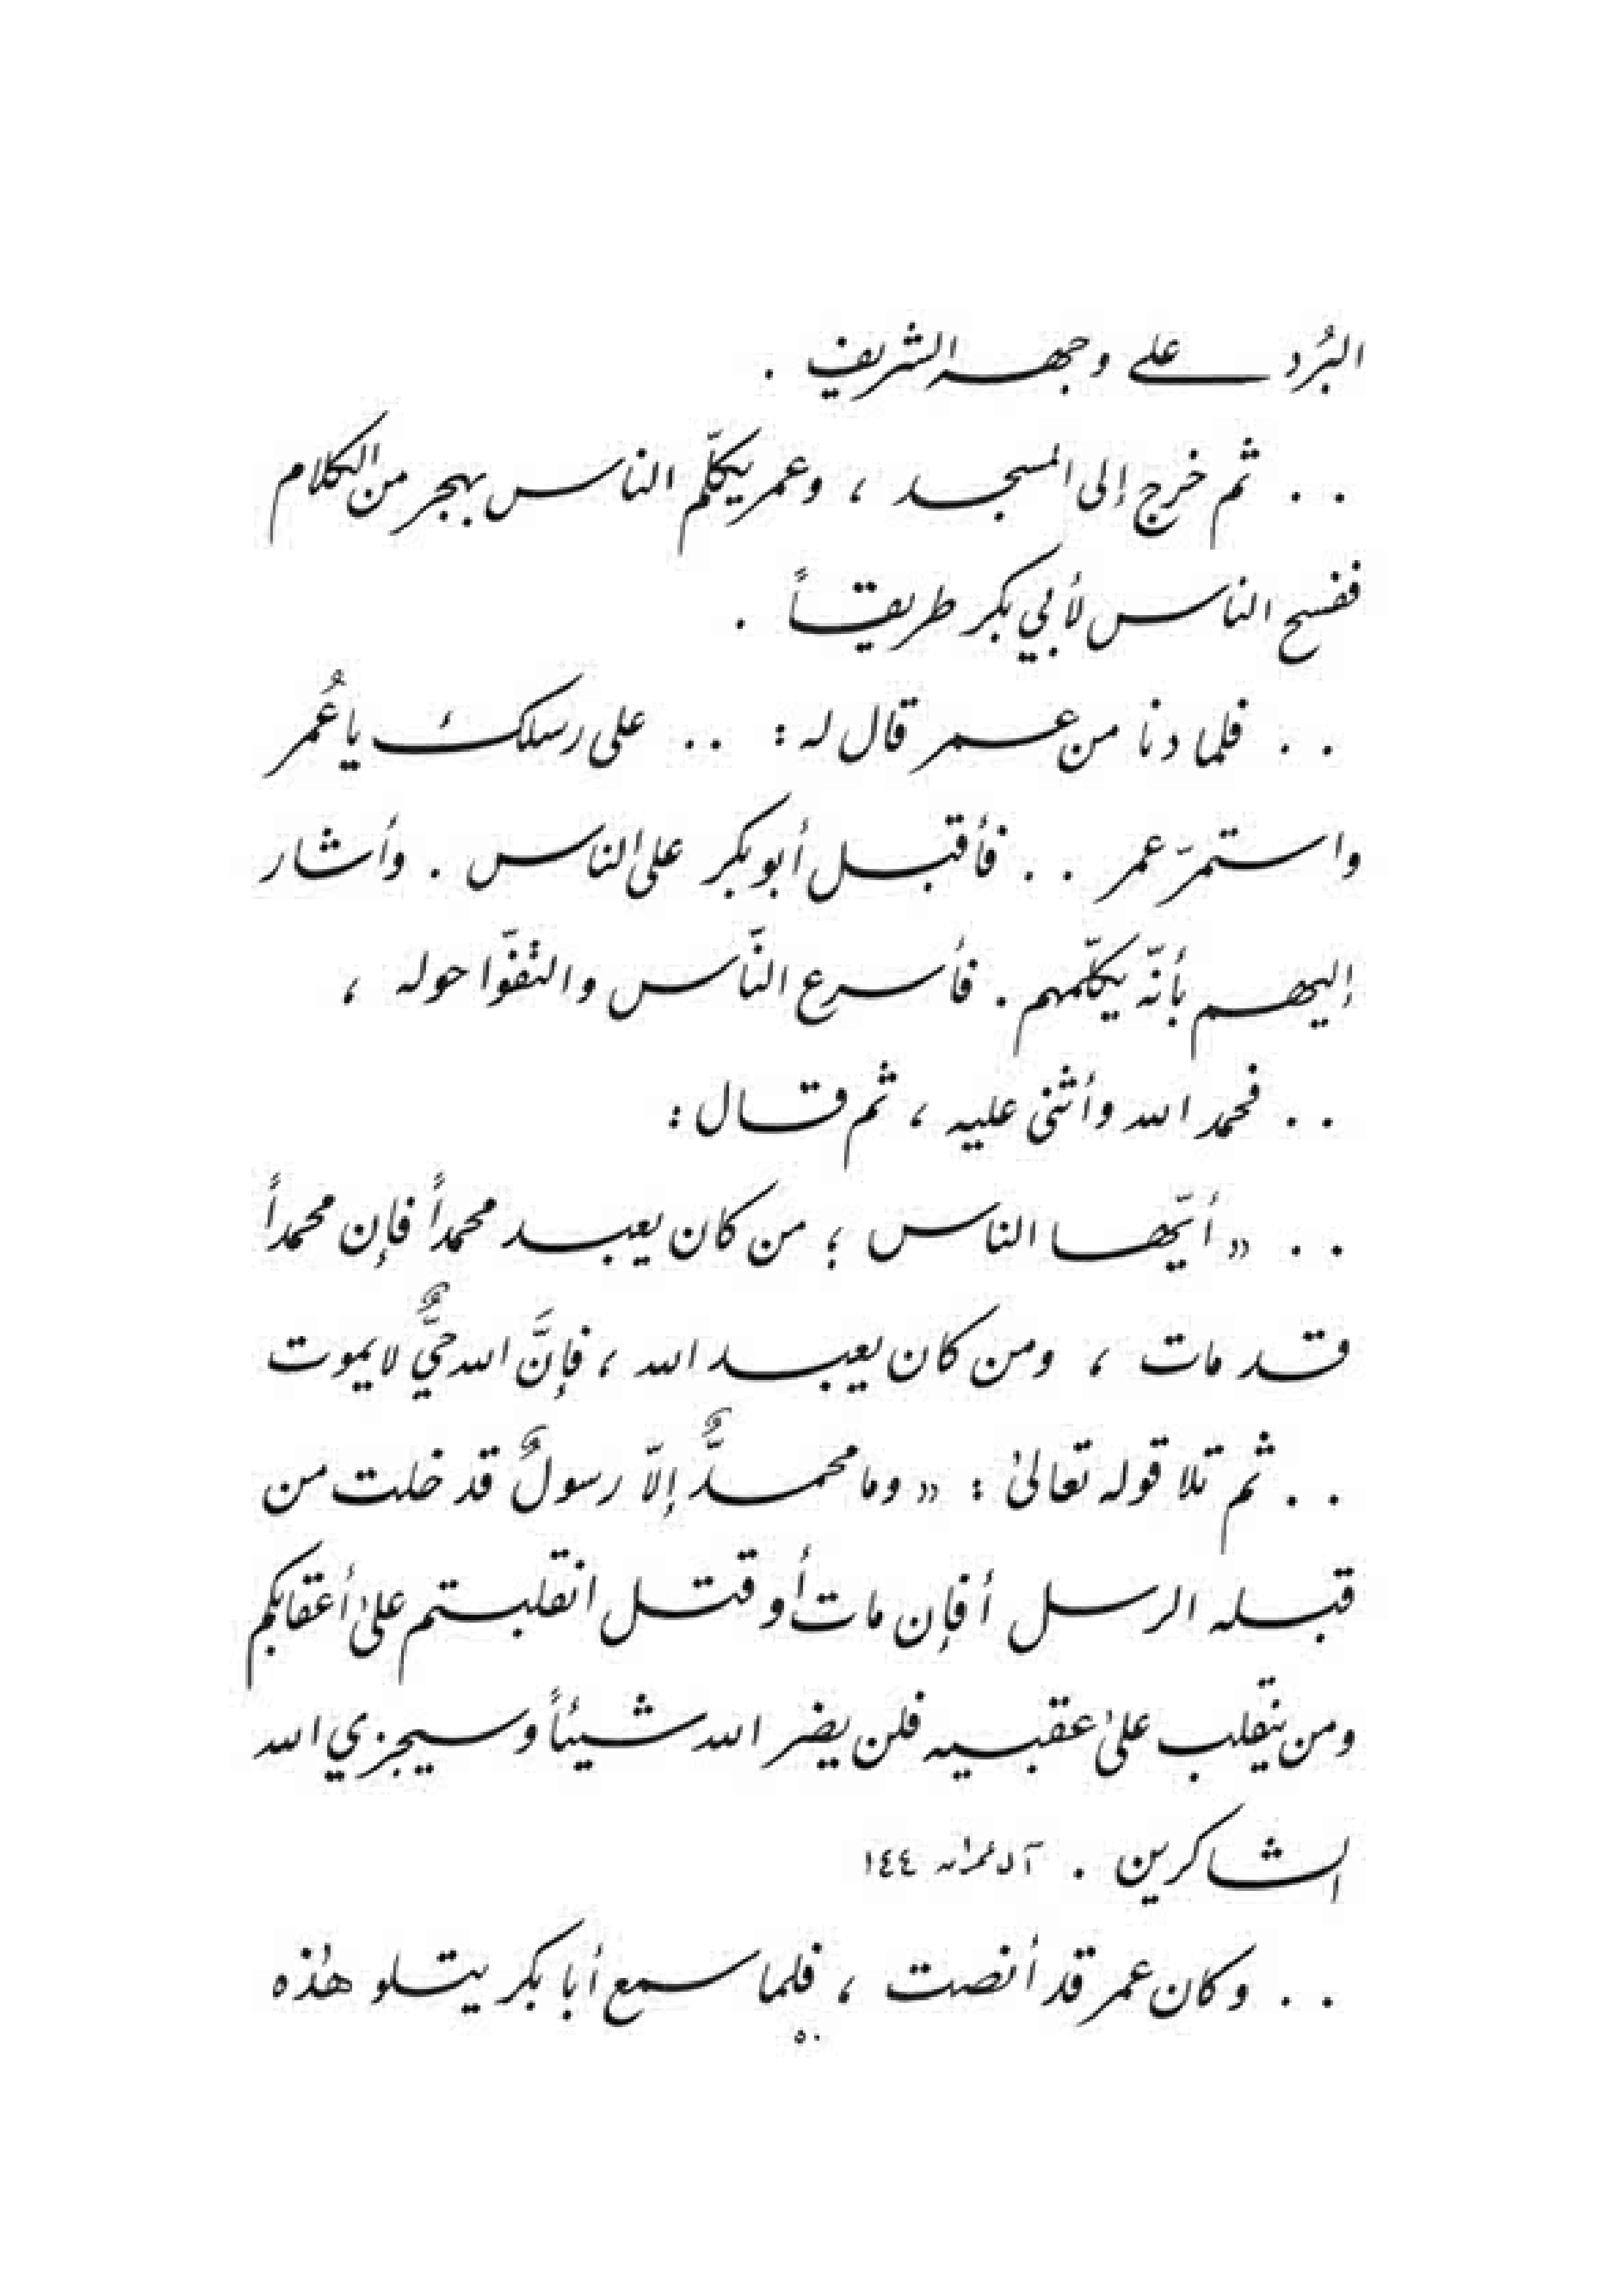 البُرد على وجهه الشريف .
. . ثم خرج إلى المسجد ، وعمر يكلّم الناس بهجر من الكلام
ففسح الناس لأبي بكر طريقاً .
. . فلما دنا من عمر قال له : . . على رسلك يا عُمر
واستمرّ عمر . . فأقبل أبو بكر على الناس . وأشار
إليهم بأنّه يكلّمهم . فأسرع النّاس والتفّوا حوله ،
. . فحمد الله وأثنى عليه ، ثم قال :
. . « أيّها الناس ؛ من كان يعبد محمداً فإن محمداً
قد مات ، ومن كان يعبد الله ، فإنَّ الله حيٌّ لا يموت
. . ثم تلا قوله تعالىٰ : « وما محمدٌّ إلاّ رسولٌ قد خلت من
قبله الرسل أفإن مات أو قتل انقلبتم علىٰ أعقابكم
ومن ينقلب علىٰ عقبيه فلن يضر الله شيئاً وسيجزي الله
الشاكرين . آل عمران ١٤٤
. . وكان عمر قد أنصت ، فلما سمع أبا بكر يتلو هٰذه
٥٠